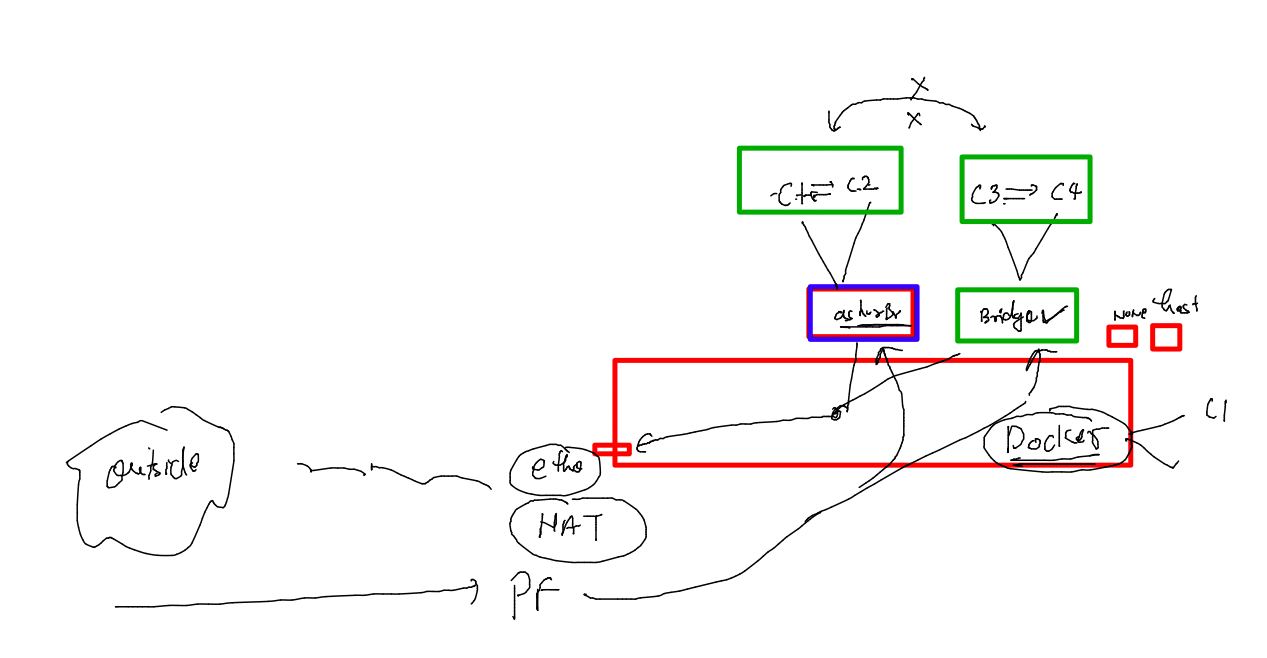 x
x
C1 ⇌ C2
C3 ⇌ C4
ashurBr
Bridge ✓
None
host
C1
Docker
outside
eth0
NAT
PF